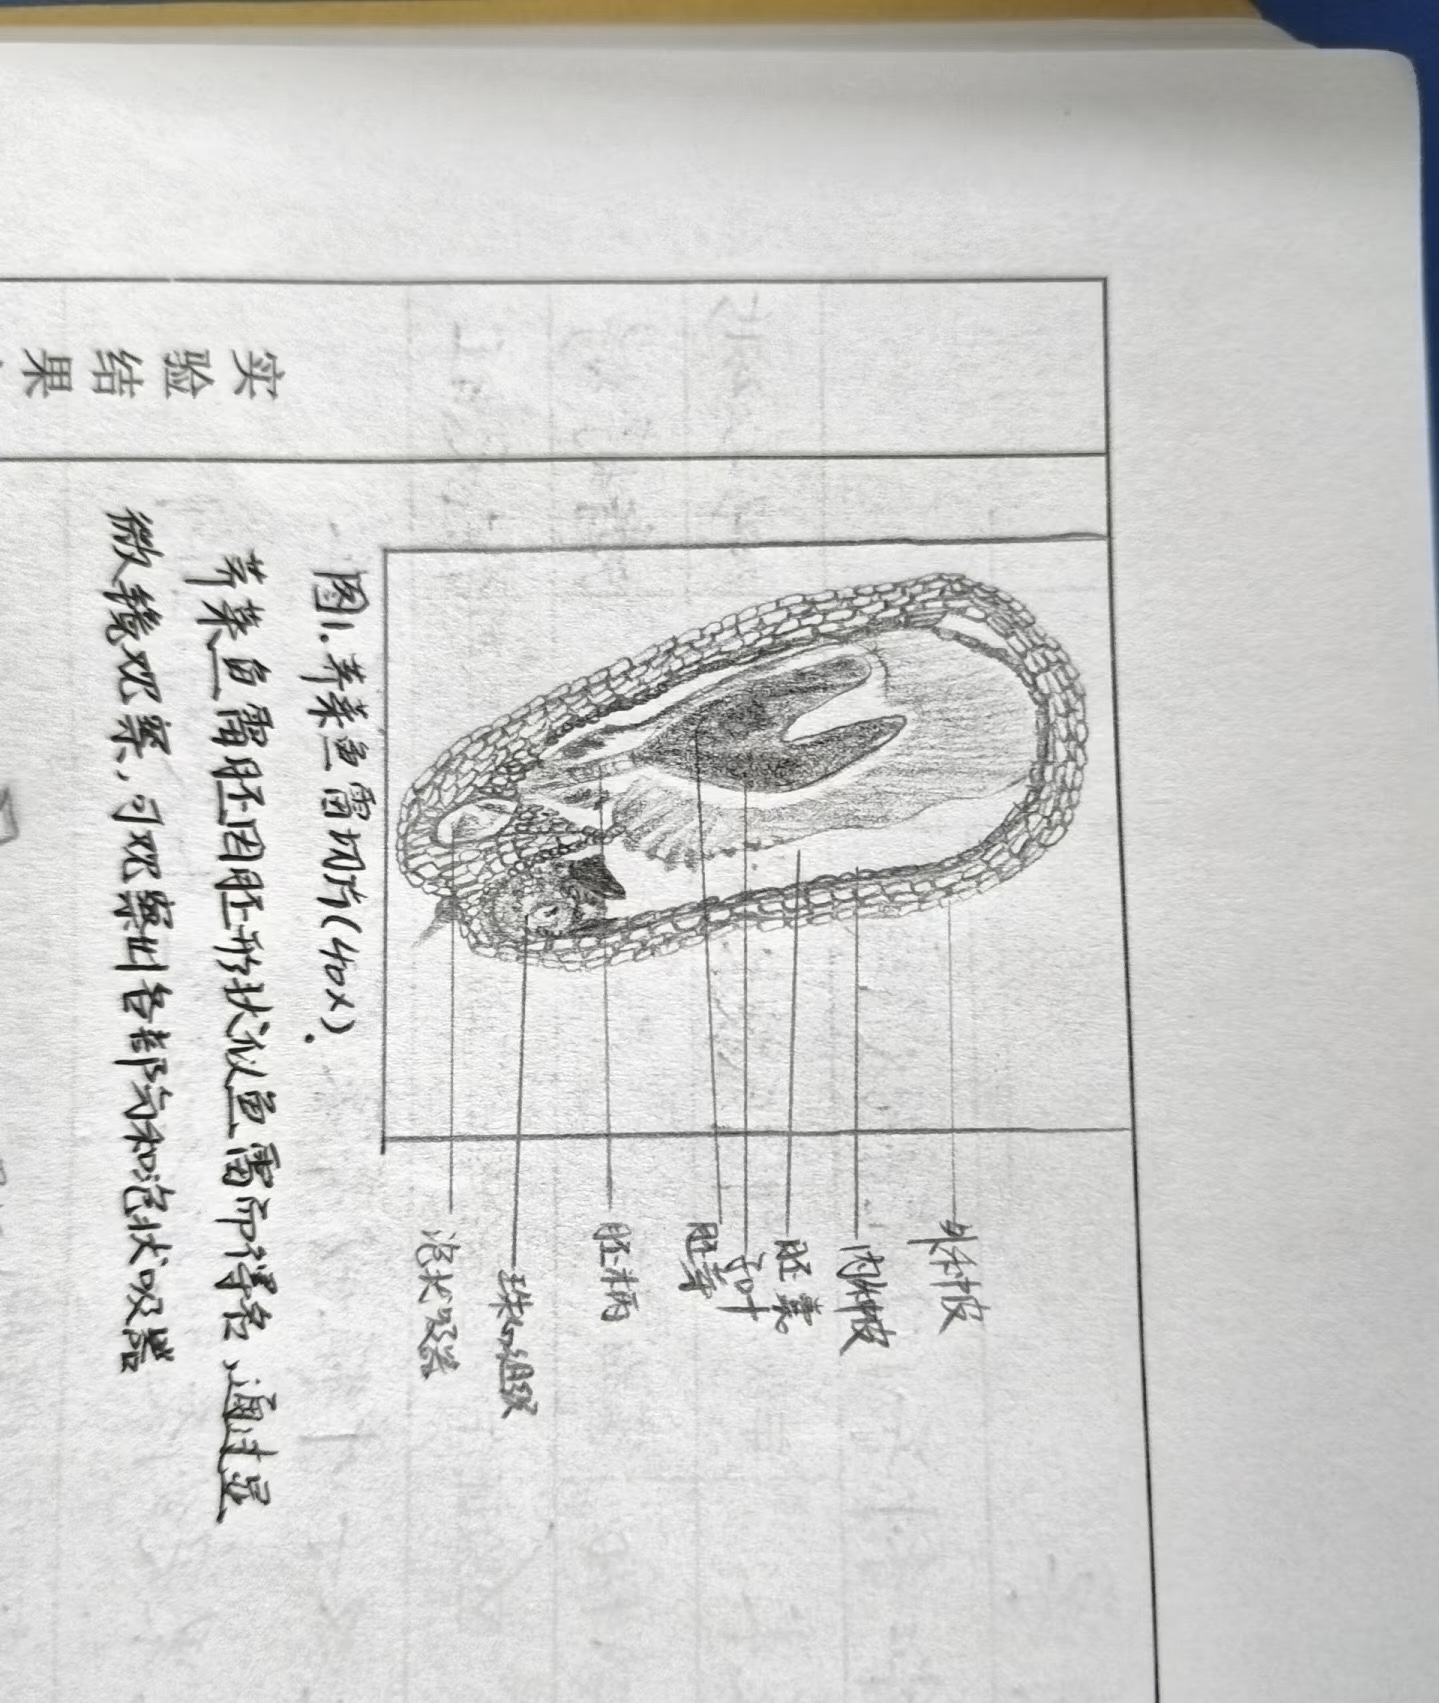 实验结果
外种皮
内种皮
胚囊
子叶
胚芽
胚柄
珠心组织
泡状吸器
图1.荠菜鱼雷切片(40×).
荠菜鱼雷胚因胚形状似鱼雷而得名,通过显
微镜观察,可观察出各部分和泡状吸器